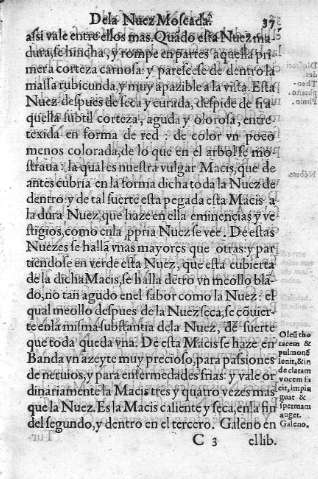 De la Nuez Moscada. 37
assi vale entre ellos mas. Quãdo esta Nuez ma
dura, se hincha, y rompe en partes aquella pri
mera corteza carnosa: y parescese de dentro la
massa rubicunda, y muy apazible a la vista. Esta
Nuez despues de seca y curada, despide de si a
quella subtil corteza, aguda y olorosa, entre
texida en forma de red: de color vn poco
menos colorada, de lo que en el arbol se mo
straua: la qual es nuestra vulgar Macis, que de
antes cubria en la forma dicha toda la Nuez de
dentro: y de tal suerte esta pegada esta Macis a
la dura Nuez, que haze en ella eminencias y ve
stigios, como enla ppria Nuez se vee. De estas
Nuezes se hallã mas mayores que otras: y par
tiendose en verde esta Nuez, que esta cubierta
de la dicha Macis, se halla dẽtro vn meollo blã
do, no tan agudo en el sabor como la Nuez: el
qual meollo despues de la Nuez seca, se cõuier
te enla misma substantia dela Nuez, de suerte
que toda queda vna. De esta Macis se haze en
Banda vn azeyte muy precioso, para passiones
de neruios, y para enfermedades frias: y vale or
dinariamente la Macis tres y quatro vezes mas
que la Nuez. Es la Macis caliente y seca, en la fin
del segundo, y dentro en el tercero. Galeno en
C 3 el lib.
Oleũ tho
racem &
pulmonẽ
lenit, & in
de claram
vocem fa
cit, impin
guat &
spermam
auget.
Galeno.